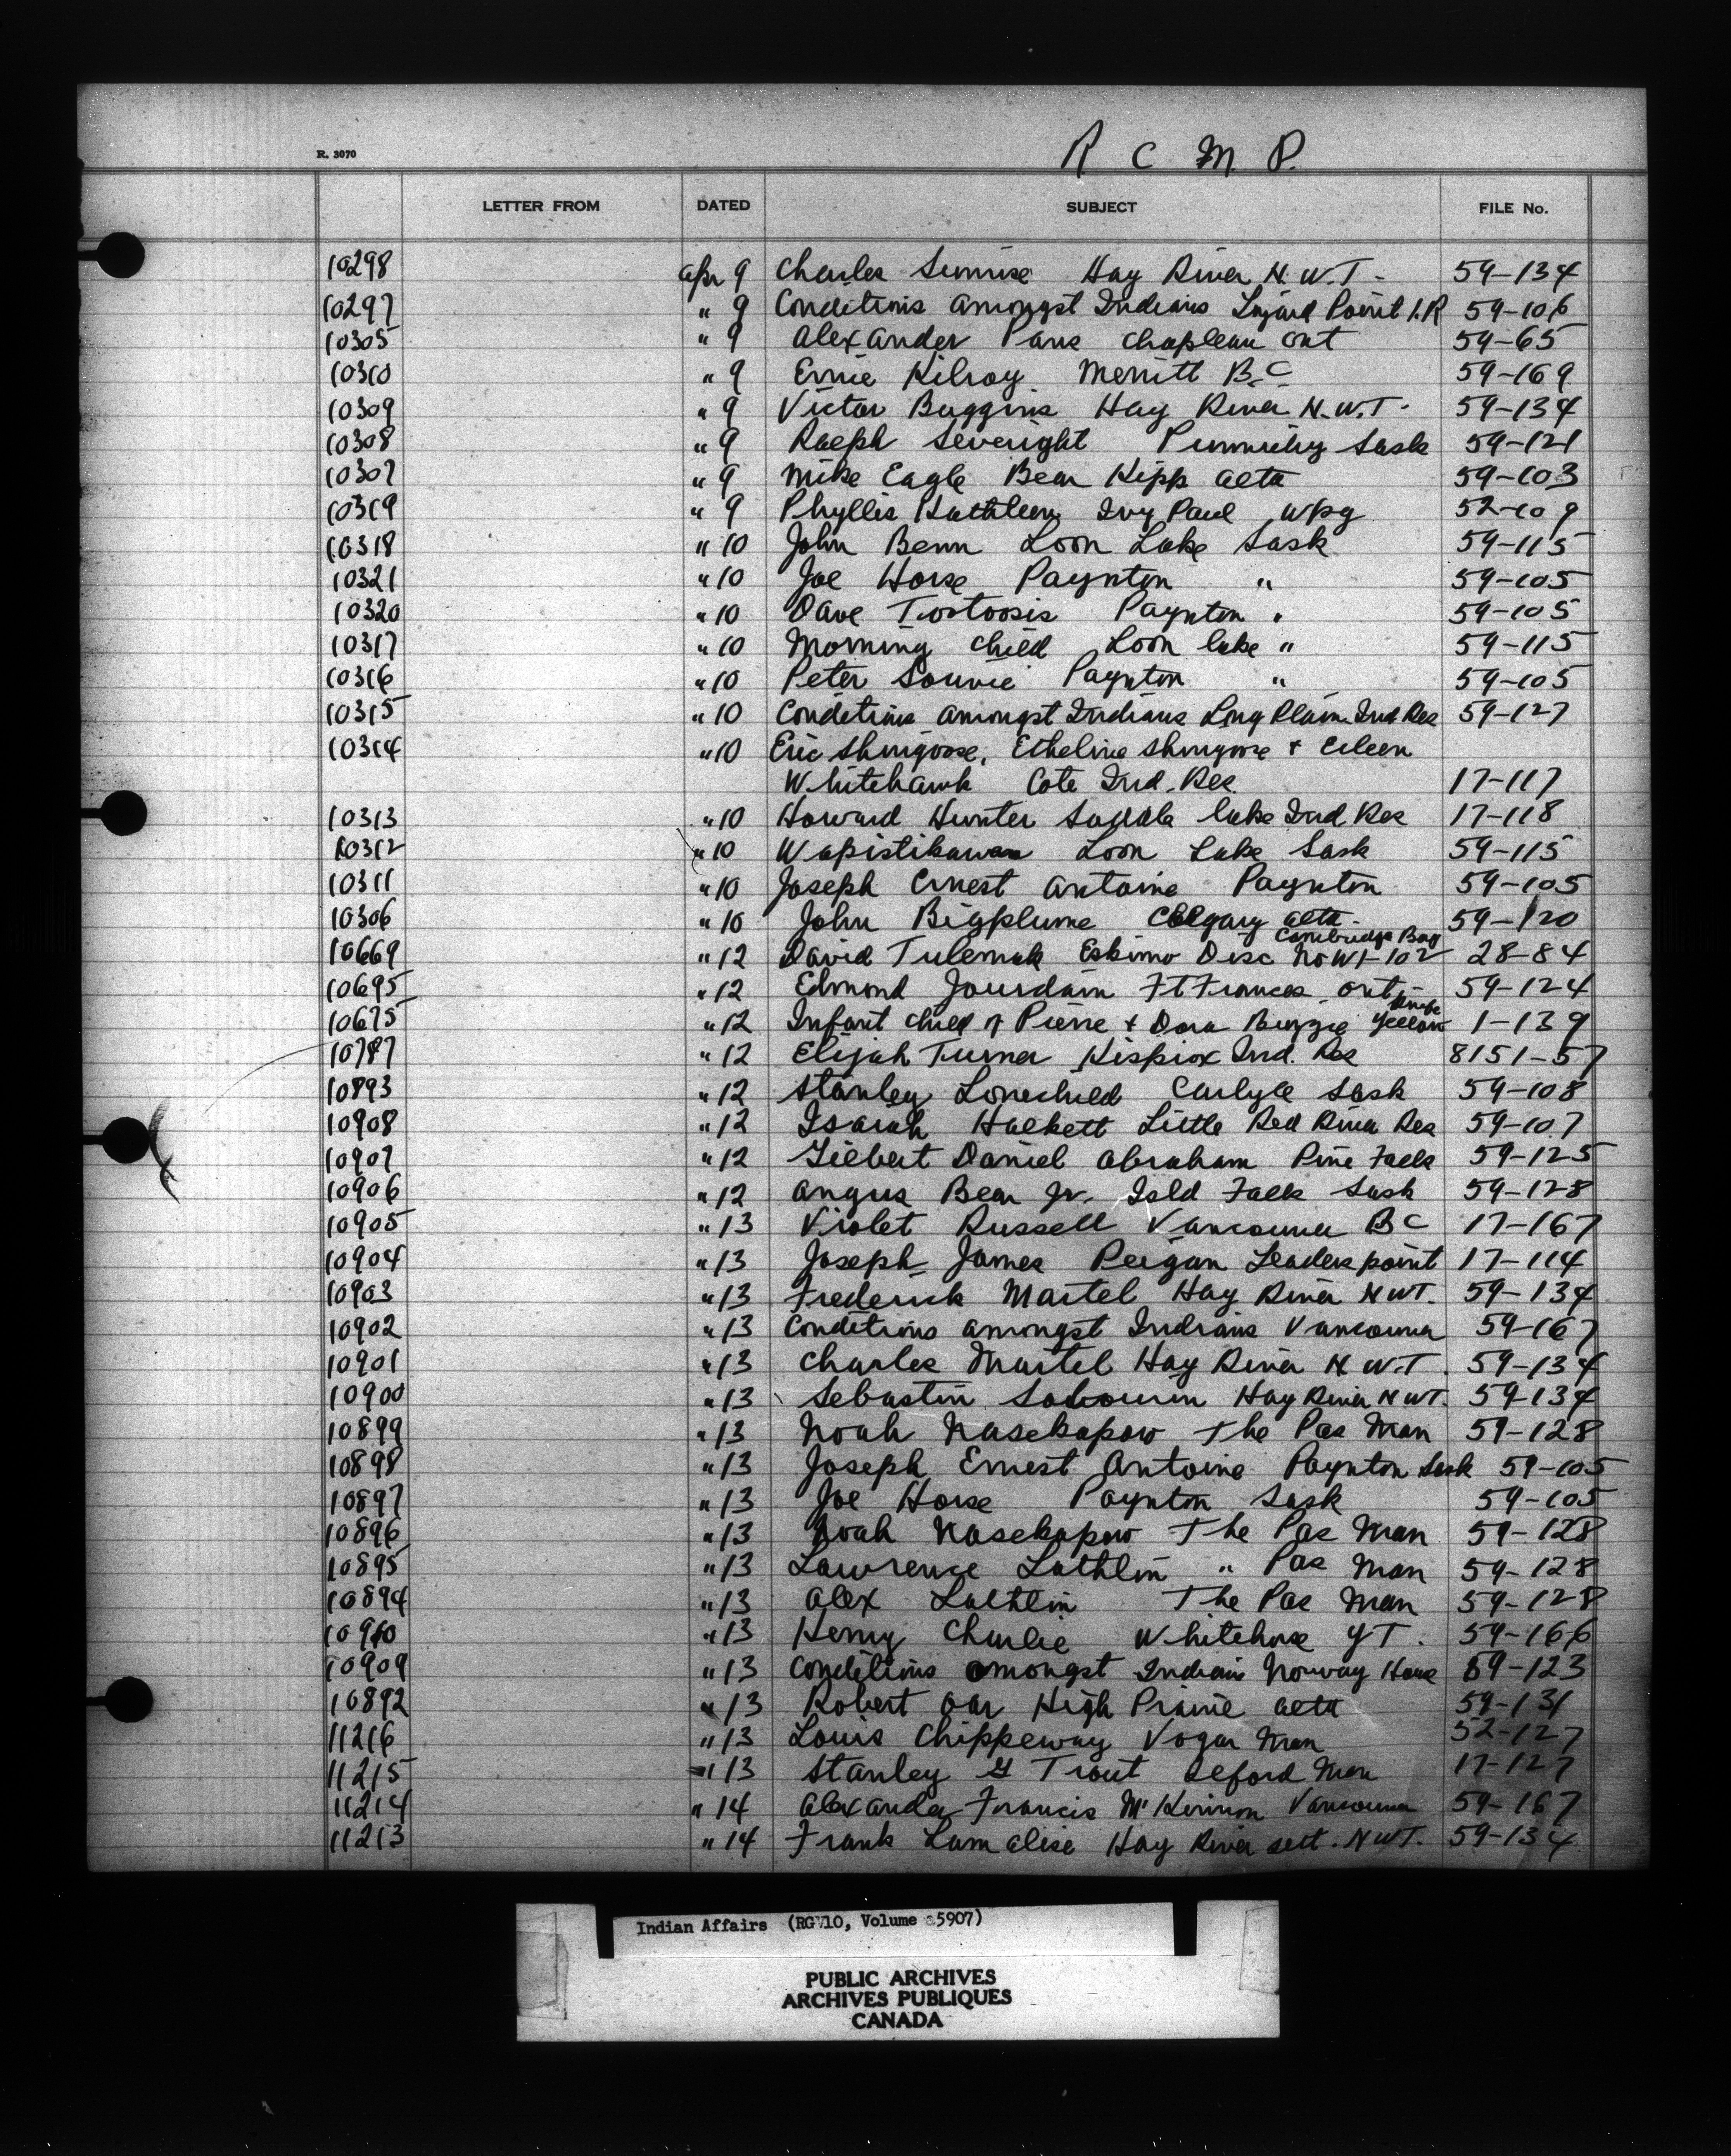 R. 3070
R C M P.
LETTER FROM DATED SUBJECT FILE No.
10298 Apr 9 Charles Sunrise Hay River N.W.T- 59-134
10297 " 9 Conditions amongst Indians Lizard Point I.R 59-106
10305 " 9 Alexander Paus Chapleau Ont 59-65
10310 " 9 Ernie Kilroy Merritt B.C 59-169
10309 " 9 Victor Buggins Hay River N.W.T- 59-134
10308 " 9 Ralph Severight Punnichy Sask 59-121
10307 " 9 Mike Eagle Bear Kipp Alta 59-103
10319 " 9 Phyllis Kathleen Ivy Paul Wpg 52-109
10318 " 10 John Benn Loon Lake Sask 59-115
10321 " 10 Joe Horse Paynton " 59-105
10320 " 10 Dave Tootoosis Paynton " 59-105
10317 " 10 Morning Child Loon lake " 59-115
10316 " 10 Peter Sounie Paynton " 59-105
10315 " 10 Conditions amongst Indians Long Plain Ind Res 59-127
10314 " 10 Eric Shingoose, Etheline Shingoose + Eileen
Whitehawk Cote Ind. Res. 17-117
10313 " 10 Howard Hunter Saddle lake Ind Res 17-118
10312 " 10 Wapistikawan Loon Lake Sask 59-115
10311 " 10 Joseph Ernest Antoine Paynton 59-105
10306 " 10 John Bigplume Calgary Alta- 59-120
10669 " 12 David Tulemak Eskimo Disc No W1-102 Cambridge Bay 28-84
10695 " 12 Edmond Jourdain Ft Frances Ont- 59-124
10675 " 12 Infant child of Pierre + Dora Beyzie Yellow Knife 1-139
10787 " 12 Elijah Turner Kispiox Ind. Res 8151-57
10893 " 12 Stanley Lonechild Carlyle Sask 59-108
10908 " 12 Isaiah Halkett Little Red River Res 59-107
10907 " 12 Gilbert Daniel Abraham Pine Falls 59-125
10906 " 12 Angus Bear Jr. Isld Falls Sask 59-128
10905 " 13 Violet Russell Vancouver BC 17-167
10904 " 13 Joseph James Peigan Leaders point 17-114
10903 " 13 Frederick Martel Hay River NWT. 59-134
10902 " 13 Conditions amongst Indians Vancouver 59-167
10901 " 13 Charles Martel Hay River N.W.T 59-134
10900 " 13 Sebastin Sabourin Hay River NWT. 59-134
10899 " 13 Noah Nasekapow The Pas Man 59-128
10898 " 13 Joseph Ernest Antoine Paynton Sask 59-105
10897 " 13 Joe Horse Paynton Sask 59-105
10896 " 13 Noah Nasekapow The Pas Man 59-128
10895 " 13 Lawrence Lathlin " Pas Man 59-128
10894 " 13 Alex Lathlin The Pas Man 59-128
10910 " 13 Henry Charlie Whitehorse YT. 59-166
10909 " 13 Conditions amongst Indians Norway House 59-123
10892 " 13 Robert Oar High Prairie Alta 59-131
11216 " 13 Louis Chippeway Vogar Man 52-127
11215 " 13 Stanley G Trout Oxford Man 17-127
11214 " 14 Alexander Francis McKinnon Vancouver 59-167
11213 " 14 Frank Lamalise Hay River sett. NWT. 59-134
Indian Affairs (RG 10, Volume 5907)
PUBLIC ARCHIVES
ARCHIVES PUBLIQUES
CANADA